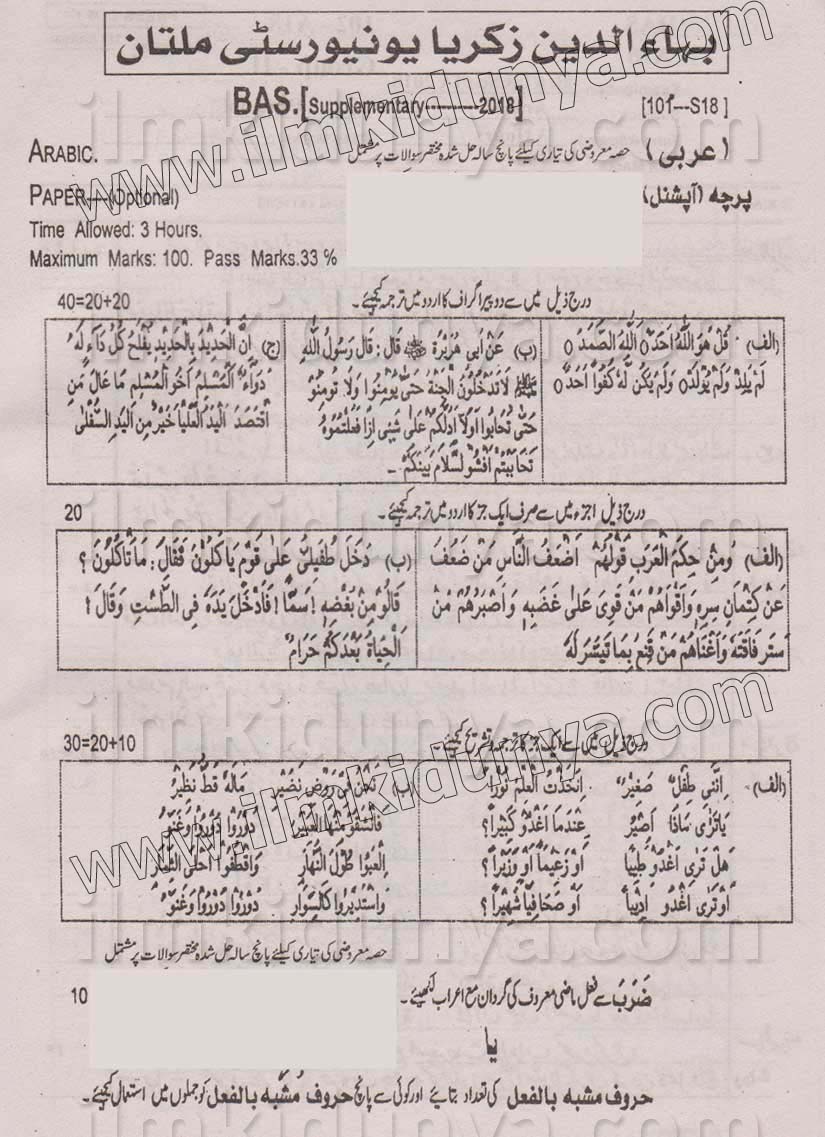 بہاء الدین زکریا یونیورسٹی ملتان
BAS.[Supplementary-----------2018] [101---S18 ]
ARABIC. حصہ معروضی کی تیاری کیلئے پانچ سالہ حل شدہ مختصر سوالات پر مشتمل (عربی)
PAPER----(Optional) پرچہ (آپشنل)
Time Allowed: 3 Hours.
Maximum Marks: 100. Pass Marks.33 %
درج ذیل میں سے دو پیراگراف کا اردو میں ترجمہ کیجیئے۔ 40=20+20
(الف) قُلْ هُوَ اللّٰهُ اَحَدٌ ○ اَللّٰهُ الصَّمَدُ ○
لَمْ یَلِدْ وَلَمْ یُوْلَدْ ○ وَلَمْ یَکُنْ لَّهٗ کُفُوًا اَحَدٌ ○
(ب) عَنْ اَبِی هُرَیْرَةَ قال: قَالَ رَسُولُ اللّٰهِ
ﷺ لَا تَدْخُلُوْنَ الْجَنَّةَ حَتّٰی یُوْمِنُوا وَلَا تُومِنُو
حَتّٰی تُحَابُوا اَوَلَا اَدُلُّکُمْ عَلٰی شَیْئٍ اِذَا فَعَلْتُمُوهُ
تَحَابَبْتُمْ اَفْشُو لسَّلَامَ بَیْنَکُمْ ۔
(ج) اِنَّ الْحَدِیْدَ بِالْحَدِیْدِ یُفْلَحُ کُلُّ دَآءٍ لَهٗ
دَوَاءٌ اَلْمُسْلِمُ اَخُو الْمُسْلِمِ مَا عَالَ مَنِ
اقْتَصَدَ اَلْیَدُ الْعُلْیَا خَیْرٌ مِنَ الْیَدِ السُّفْلٰی
درج ذیل اجزء میں سے صرف ایک جز کا اردو میں ترجمہ کیجیئے۔ 20
(الف) وَمِنْ حِکَمِ الْعَرَبِ قَوْلُهُمْ اَضْعَفُ النَّاسِ مَنْ ضَعُفَ
عَنْ کِتْمَانِ سِرِهٖ وَاَقْوَاهُمْ مَنْ قَوِیَ عَلٰی غَضَبِهٖ وَاَصْبَرُهُمْ مَنْ
سَتَرَ فَاقَتَهٗ وَاَغْنَاهُمْ مَنْ قَنِعَ بِمَا تَیَسَّرَ لَهٗ
(ب) دَخَلَ طُفَیْلِیٌّ عَلٰی قَوْمٍ یَاکُلُوْنَ فَقَالَ: مَا تَاکُلُوْنَ؟
قَالُو مِنْ بُغْضِهٖ! سَمًّا! فَاَدْخَلَ یَدَهٗ فِی الطَّشْتِ وَقَالَ!
اَلْحَیَاةُ بَعْدَکُمْ حَرَامٌ
درج ذیل میں سے ایک جز کا ترجمہ تشریح کیجیئے۔ 30=20+10
(الف) اِنَّنِی طِفْلٌ صَغِیْرٌ اِتَّخَذْتُ الْعِلْمَ نُوْرًا
یَا تَرٰی مَاذَا اَصِیْرُ عِنْدَمَا اَغْدُو کَبِیْراً؟
هَلْ تَرٰی اَغْدُو طَبِیْباً اَوْ زَعِیْماً اَوْ وَزِیْراً؟
اَوْ تَرٰی اَغْدُو اَدِیْباً اَوْ صَحَافِیًا شَهِیْراً؟
(ب) نَحْنُ فِی رَوْضٍ نَضِیْرٍ مَالَهٗ قَطُّ نَظِیْرُ
فَانْشَقُوْا مِنْهَا الْعَبِیْرَ دُوْرُوْا دُوْرُوْا وَغَنُّو
اِلْعَبُوا طُوْلَ النَّهَارِ وَاقْطِفُوْا اَحْلَی الثِّمَارِ
وَاسْتَدِیْرُوا کَالسِّوَارِ دُوْرُوْا دُوْرُوْا وَغَنُّو
حصہ معروضی کی تیاری کیلئے پانچ سالہ حل شدہ مختصر سوالات پر مشتمل
ضَرَبَ سے فعل ماضی معروف کی گردان مع اعراب لکھیئے۔ 10
یا
حروف مشبہ بالفعل کی تعداد بتائیے اور کوئی سے پانچ حروف مشبہ بالفعل کو جملوں میں استعمال کیجیئے۔
www.ilmkidunya.com
www.ilmkidunya.com
ilmkidunya.com